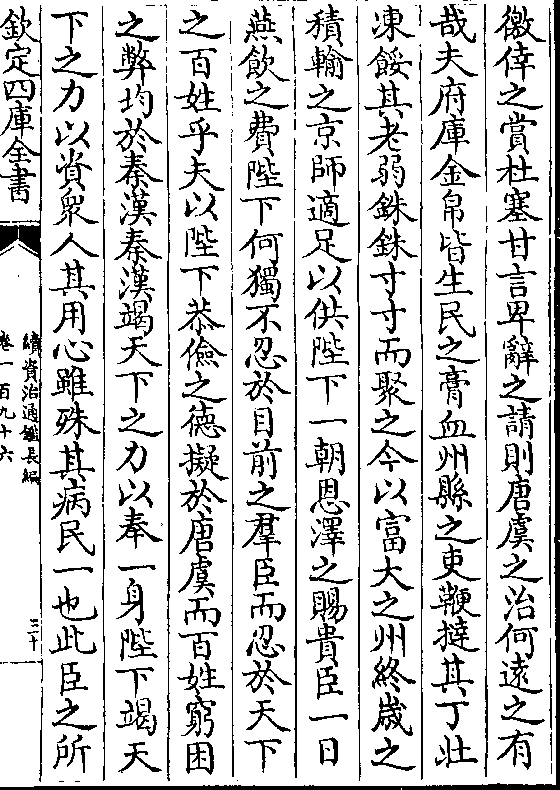 徼倖之賞杜塞甘言卑辭之請則唐虞之治何遠之有
哉夫府庫金帛皆生民之膏血州縣之吏鞭撻其丁壯
凍餒其老弱銖銖寸寸而聚之今以富大之州終歲之
積輸之京師適足以供陛下一朝恩澤之賜貴臣一日
燕飲之費陛下何獨不忍於目前之羣臣而忍於天下
之百姓乎夫以陛下恭儉之德擬於唐虞而百姓窮困
之弊均於秦漢秦漢竭天下之力以奉一身陛下竭天
下之力以資眾人其用心雖殊其病民一也此臣之所
欽定四庫全書
續資治通鑑長編
卷一百九十六
三十